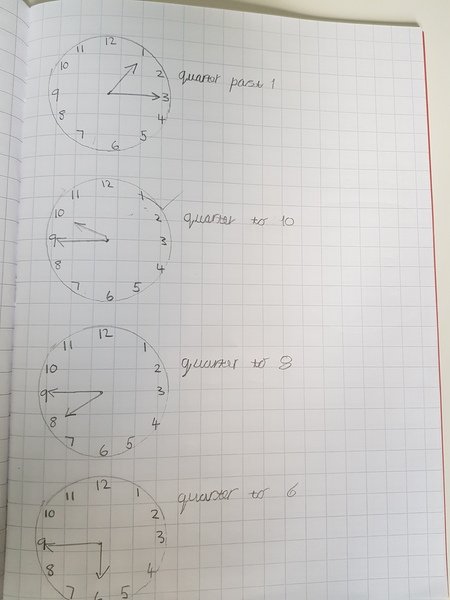 12
11
1
10
2
9
3
8
4
7
5
6
quarter past 1
12
11
1
10
2
9
3
8
4
7
5
6
quarter to 10
12
11
1
10
2
9
3
8
4
7
5
6
quarter to 8
12
11
1
10
2
9
3
8
4
7
5
6
quarter to 6